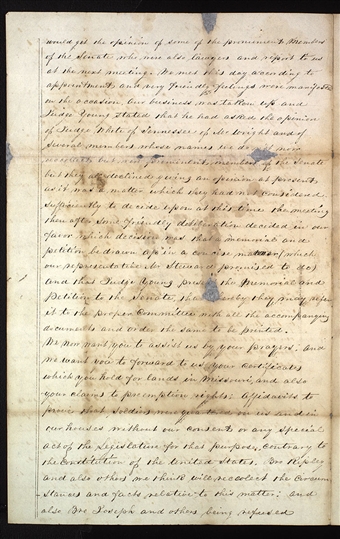 would get the opinion of some of the prominent Members
of the Senate who were also lawyers and report to us
at the next meeting. We met this day according to
appointment and very friendly feelings were manifested
on the occasion. Our business was taken up and
Judge Young stated that he had asked the opinion
of Judge White of Tennessee of Mr Wright and of
several members whose names we do not now
recollect but are prominent members of the Senate
but they all declined giving an opinion at present,
as it was a matter which they had not considered
sufficiently to decide upon at this time the meeting
then after some friendly deliberation decided in our
favor which decision was that a memorial and
petition be drawn up in a concise manner, (which
our representative Mr Steward promised to do)
and that Judge Young present the Memorial and
Petition to the Senate, that thereby they may refer
it to the proper Committee with all the accompanying
documents and order the same to be printed.
We now want you to assist us by your prayers, and
we want you to forward to us your Certificates
which you hold for lands in Missouri, and also
your claims to preemption rights. Affidavits to
prove that soldiers were quartered on us and in
our houses without our consent or any special
act of the Legislature for that purpose, contrary to
the Constitution of the United States. Bro Ripley
and also others we think will recollect the Circum
stances and facts relative to this matter; and
also Bro Joseph and others being refused